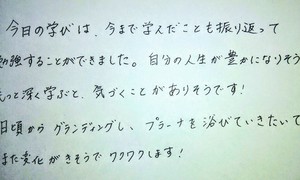 今日の学びは、今まで学んだことも振り返って
勉強することができました。自分の人生が豊かになりそう
もっと深く学ぶと、気づくことがありそうです!
日頃からグランディングし、プラーナを浴びていきたいで
また変化がきそうでワクワクします!